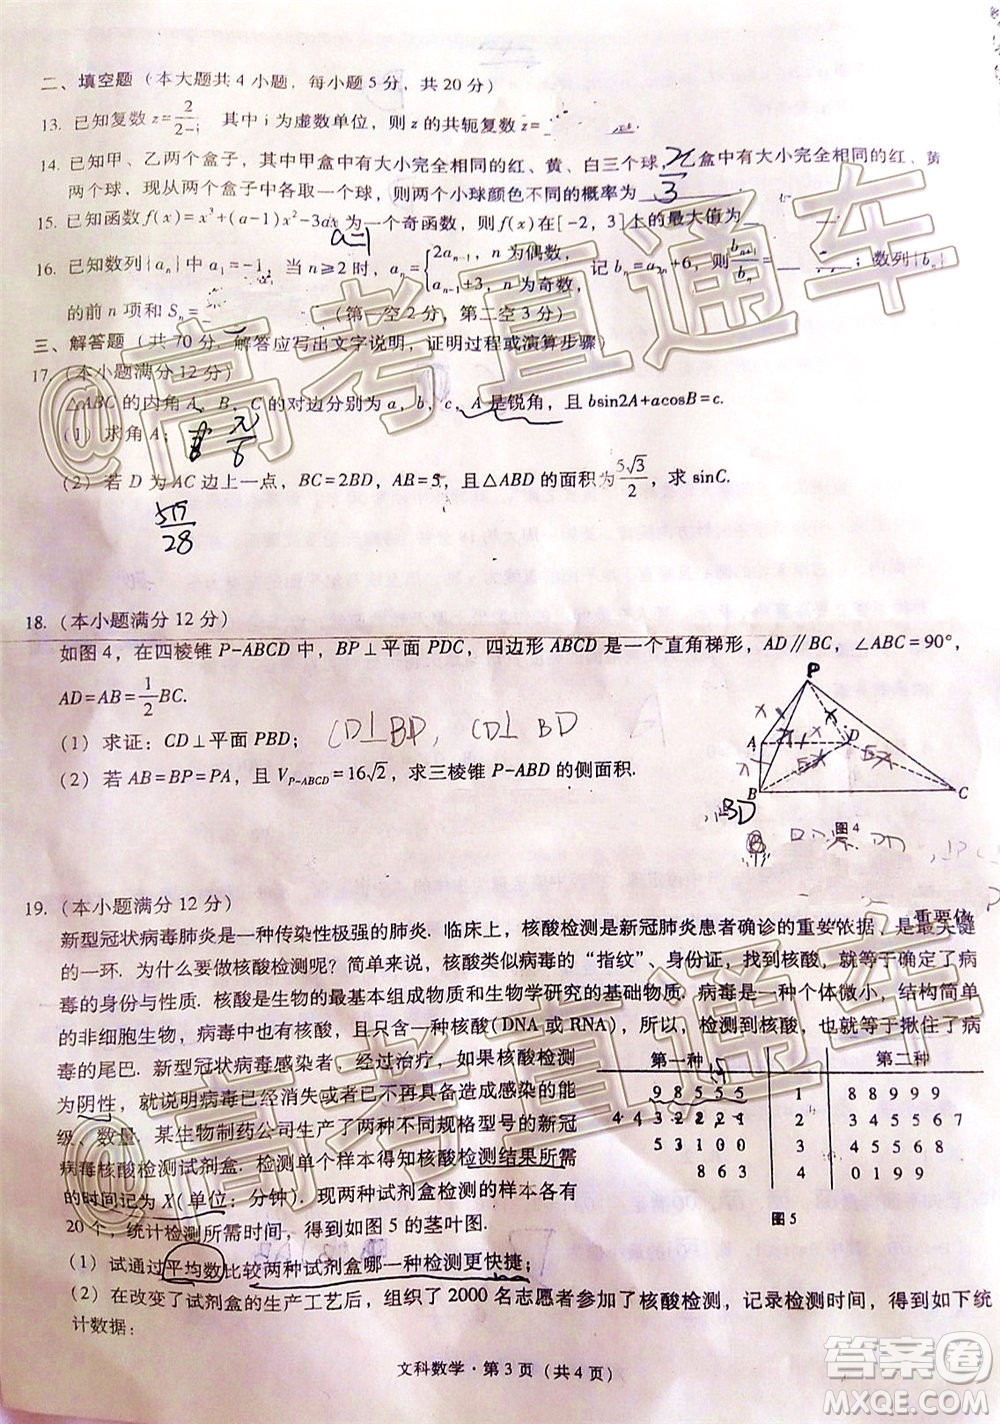 二、填空题（本大题共4小题，每小题5分，共20分）
13. 已知复数z=2/(2-i)，其中i为虚数单位，则z的共轭复数z̄=
14. 已知甲、乙两个盒子，其中甲盒中有大小完全相同的红、黄、白三个球，乙盒中有大小完全相同的红、黄
两个球，现从两个盒子中各取一个球，则两个小球颜色不同的概率为 2/3
15. 已知函数f(x)=x³+(a-1)x²-3ax为一个奇函数，则f(x)在[-2，3]上的最大值为
a=1
16. 已知数列{aₙ}中a₁=-1，当n≥2时，aₙ={2aₙ₋₁，n为偶数，aₙ₋₁+3，n为奇数. 记bₙ=a₂ₙ+6，则bₙ₊₁/bₙ= ；数列{bₙ}
的前n项和Sₙ= （第一空2分，第二空3分）
三、解答题（共70分. 解答应写出文字说明，证明过程或演算步骤）
17.（本小题满分12分）
△ABC的内角A、B、C的对边分别为a，b，c，A是锐角，且bsin2A+acosB=c.
（1）求角A； π/6
（2）若D为AC边上一点，BC=2BD，AB=5，且△ABD的面积为5√3/2，求sinC.
5√7/28
18.（本小题满分12分）
如图4，在四棱锥P-ABCD中，BP⊥平面PDC，四边形ABCD是一个直角梯形，AD∥BC，∠ABC=90°，
AD=AB=1/2BC.
（1）求证：CD⊥平面PBD； CD⊥BP, CD⊥BD
（2）若AB=BP=PA，且V_P-ABCD=16√2，求三棱锥P-ABD的侧面积.
P
A D
B C
BD
图4
19.（本小题满分12分）
新型冠状病毒肺炎是一种传染性极强的肺炎. 临床上，核酸检测是新冠肺炎患者确诊的重要依据，是最关键
的一环. 为什么要做核酸检测呢？简单来说，核酸类似病毒的“指纹”、身份证，找到核酸，就相当于找到病
毒的身份与性质. 核酸是生物的最基本组成物质和生物学研究的基础物质. 病毒是一种个体微小，结构简单
的非细胞生物，病毒中也有核酸，只含一种核酸（DNA或RNA），所以，检测到核酸，也就等于揪住了病
毒的尾巴. 新型冠状病毒感染者，经过治疗，如果核酸检测
为阴性，就意味着病毒已经消失或者已不再具备造成感染的能
级、数量. 某生物制药公司生产了两种不同规格型号的新冠
病毒核酸检测试剂盒. 检测单个样本得到核酸检测结果所需
的时间记为X（单位：分钟）. 现两种试剂盒检测的样本各有
20个，统计检测所需时间，得到如图5的茎叶图.
第一种 第二种
9 8 5 5 5 1 8 8 9 9 9
4 4 3 2 2 2 1 2 3 4 5 5 5 6 7
5 3 1 0 0 3 4 5 5 6 8
8 6 3 4 0 1 9 9
图5
（1）试通过平均数比较两种试剂盒哪一种检测更快捷；
（2）在改变了试剂盒的生产工艺后，组织了2000名志愿者参加了核酸检测，记录检测时间，得到如下统
计数据：
文科数学·第3页（共4页）
@高考直通车
@高考直通车
答案卷
MXQE.COM